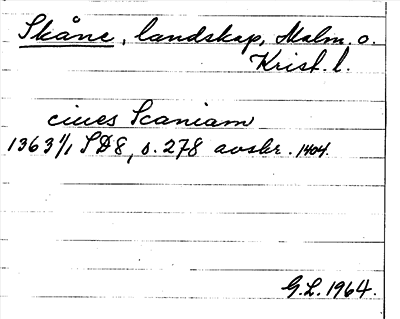 Skåne, landskap, Malm. o.
Krist. l.
ciues Scaniam
1363 1/1 SD8, s. 278 avskr. 1404.
G.L. 1964.